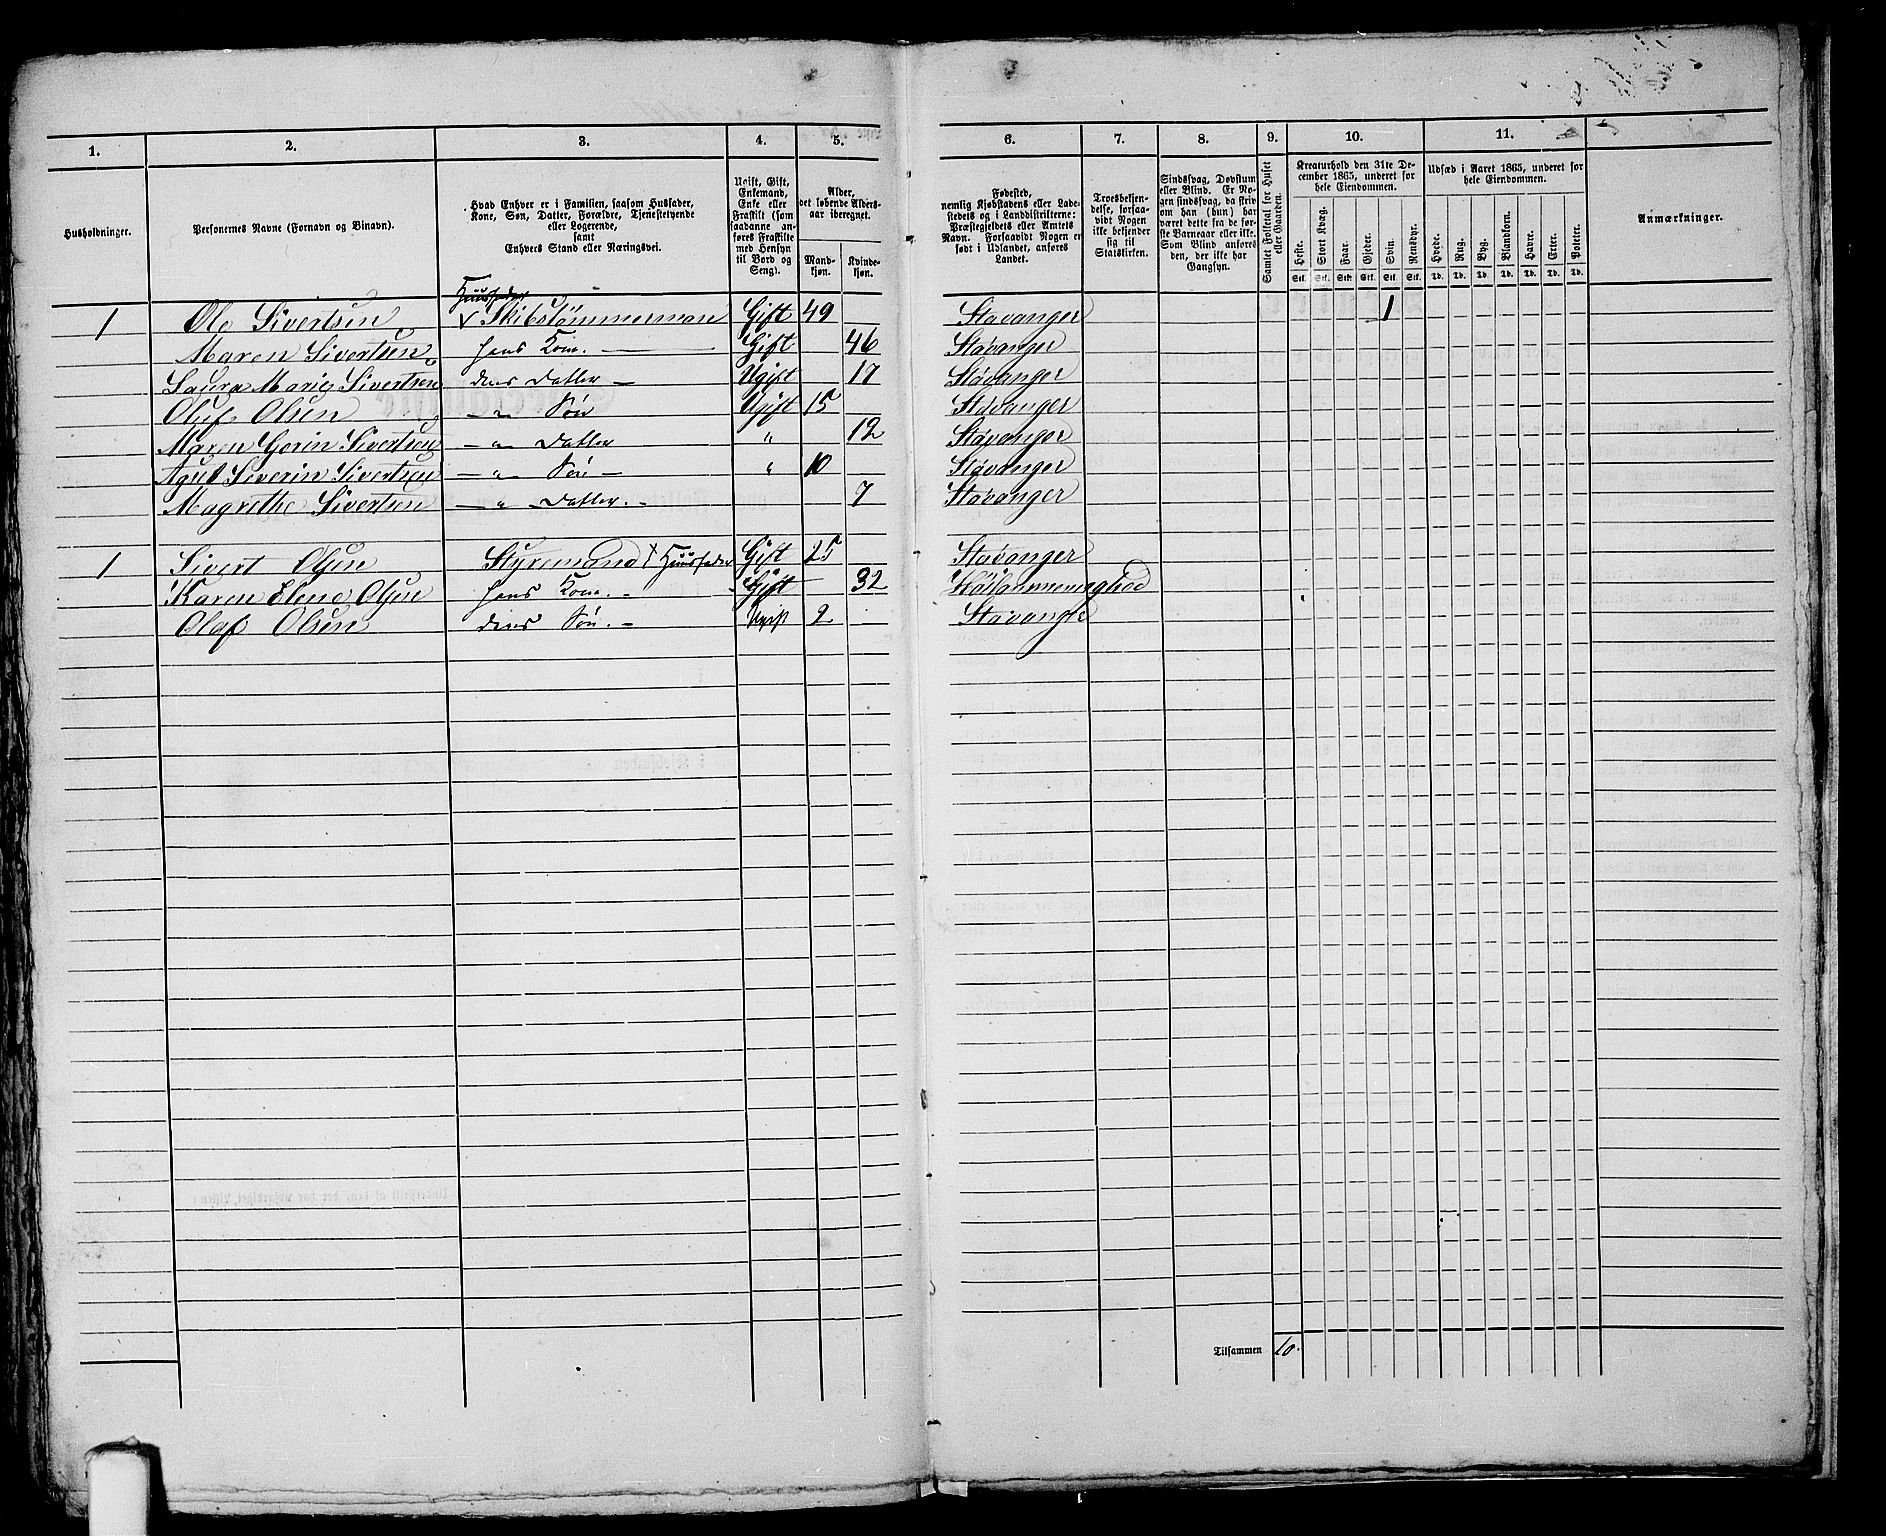 1. 2. 3. 4. 5. 6. 7. 8. 9. 10. 11.
Husholdninger.
Personernes Navne (Fornavn og Binavn).
Hvad Enhver er i Familien, saasom Husfader,
Kone, Søn, Datter, Forældre, Tjenestetyende
eller Logerende,
samt
Enhvers Stand eller Næringsvei.
Ugift, Gift,
Enkemand,
Enke eller
Fraskilt (som
saadanne an-
føres Fraskilte
med Hensyn
til Bord og
Seng).
Alder,
det løbende Alders-
aar iberegnet.
Mand-
kjøn.
Kvinde-
kjøn.
Fødested,
nemlig Kjøbstadens eller Lade-
stedets og i Landdistrikterne:
Præstegjeldets eller Amtets
Navn. Forsaavidt Nogen er
født i Udlandet, anføres
Landet.
Troesbekjen-
delse, forsaa-
vidt Nogen
ikke bekjender
sig til
Statskirken.
Sindssvag, Døvstum
eller Blind. Er No-
gen sindssvag, da skriv
om han (hun) har
været dette fra de før-
ste Barneaar eller ikke.
Som Blind anføres
den, der ikke har
Gangsyn.
Samlet Folketal for Huset
eller Gaarden.
Kreaturhold den 31te De-
cember 1865, underet for
hele Eiendommen.
Heste. Stort Kvæg. Faar. Gjeder. Svin. Rensdyr.
Stk. Stk. Stk. Stk. Stk. Stk.
Udsæd i Aaret 1865, underet for
hele Eiendommen.
Hvede. Rug. Byg. Blandkorn. Havre. Erter. Poteter.
Td. Td. Td. Td. Td. Td. Td.
Anmærkninger.
Huusfader
1 Ole Sivertsen Skibstømmermand Gift 49 Stavanger 1
Maren Sivertsen hans Kone. Gift 46 Stavanger
Laura Marie Sivertsen deres Datter Ugift 17 Stavanger
Oluf Olsen — " — Søn Ugift 15 Stavanger
Maren Gorin Sivertsen — " — Datter " 12 Stavanger
Severin Sivertsen — " — Søn " 10 Stavanger
Magrethe Sivertsen — " — Datter. 7 Stavanger
1 Sivert Olsen Styremand Huusfader Gift 25 Stavanger
Karen Elene Olsen hans Kone. Gift 32
Olaf Olsen deres Søn. Ugift 2 Stavanger
Tilsammen 10.